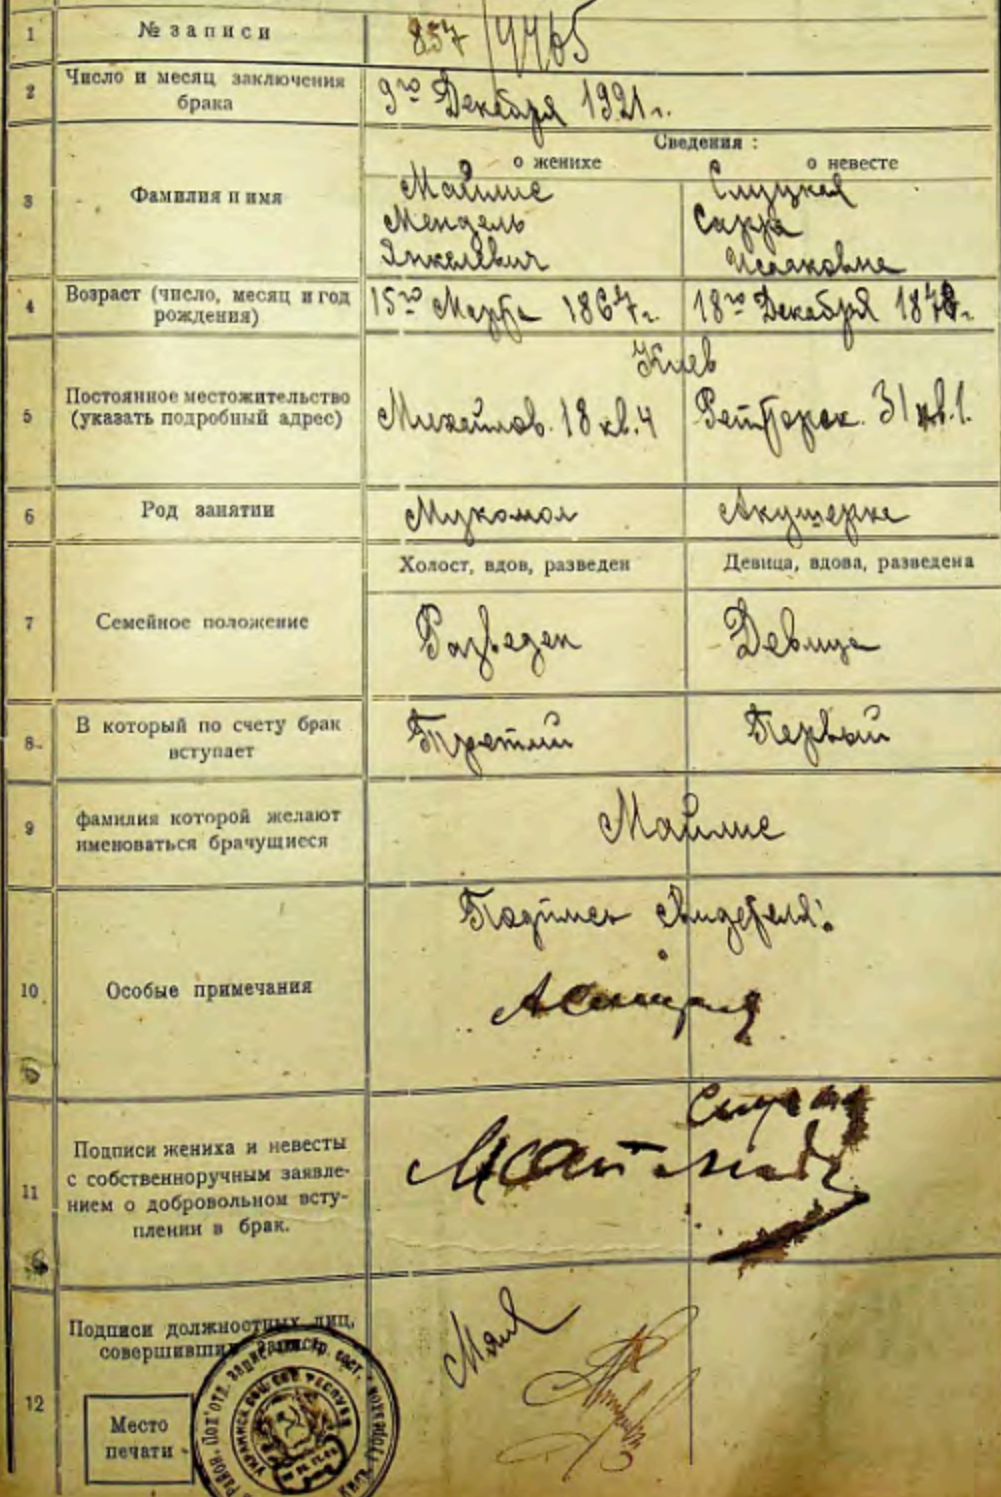 1 № записи 857/4465
2 Число и месяц заключения
брака
9го Декабря 1921 г.
Сведения :
о женихе о невесте
3 Фамилия и имя
Майлис Слуцкая
Мендель Сарра
Янкелевич Исааковна
4 Возраст (число, месяц и год
рождения)
15го Марта 1867 г. 18го Декабря 1878 г.
Киев
5 Постоянное местожительство
(указать подробный адрес)
Михайлов. 18 кв. 4 Рейторск. 31 кв. 1.
6 Род занятии Мукомол Акушерка
Холост, вдов, разведен Девица, вдова, разведена
7 Семейное положение
Разведен Девица
8 В который по счету брак
вступает
Третий Первый
9 фамилия которой желают
именоваться брачущиеся
Майлис
Подпись свидетеля:
10 Особые примечания
11 Подписи жениха и невесты
с собственноручным заявле-
нием о добровольном всту-
плении в брак.
Подписи должностных лиц,
совершивших
12
Место
печати